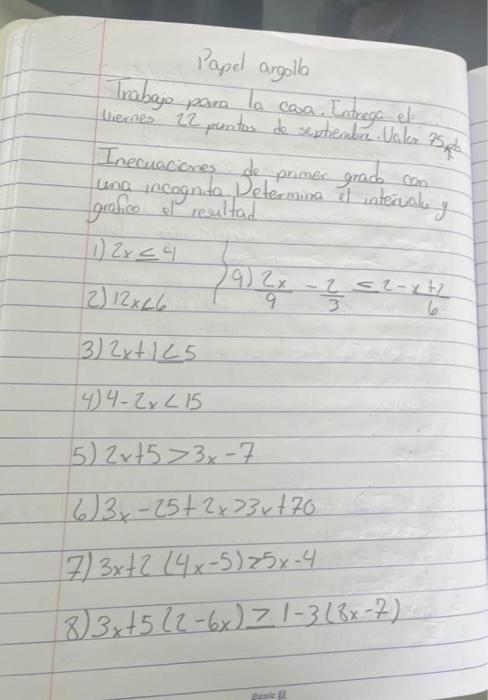 Papel argolla
Trabajo para la casa. Entrega el
viernes 22 puntos de septiembre. Valor 75 pts
Inecuaciones de primer grado con
una incognita Determina el intervalo y
grafico el resultad
1) 2x ≤ 4
9) 2x/9 - 2/3 ≤ 2 - x+2/6
2) 12x<6
3) 2x+1≤5
4) 4-2x<15
5) 2x+5>3x-7
6) 3x-25+2x>3x+70
7) 3x+2(4x-5)≥5x-4
8) 3x+5(2-6x)≥1-3(8x-7)
Basic